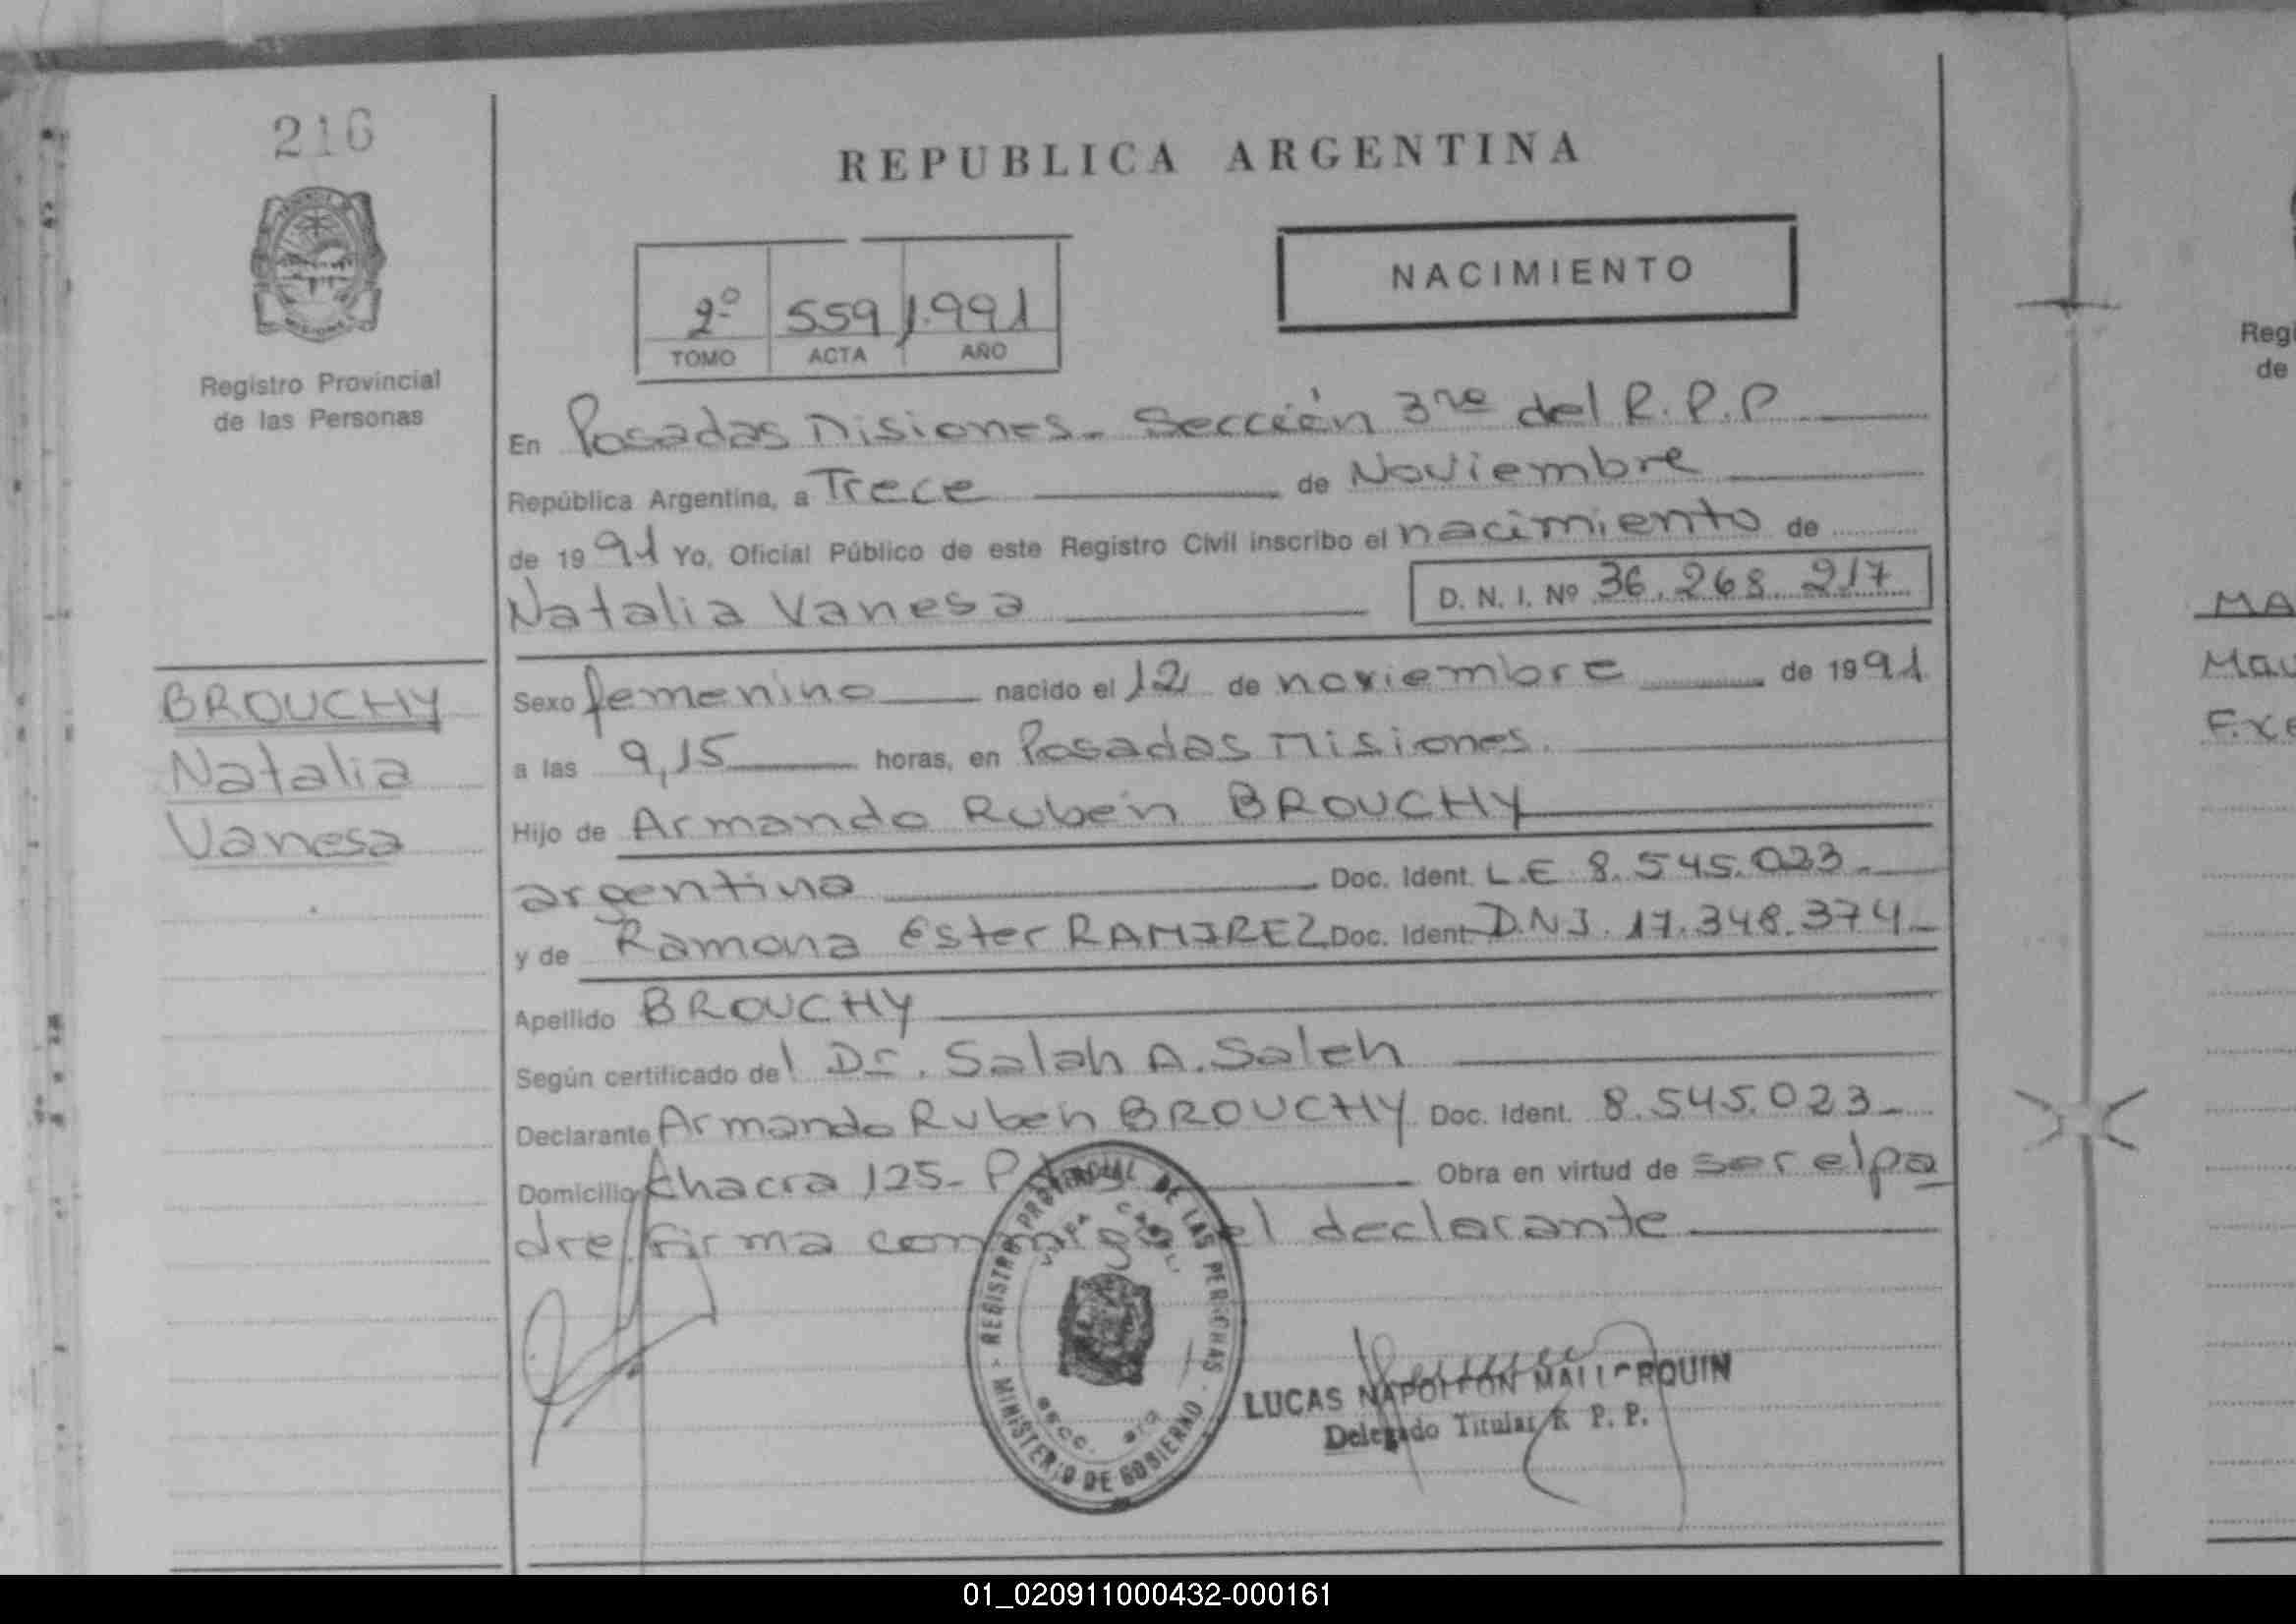 216
Registro Provincial
de las Personas
BROUCHY
Natalia
Vanesa
REPUBLICA ARGENTINA
2º 559 1.991
TOMO ACTA AÑO
NACIMIENTO
En Posadas Misiones. Sección 3ra del R.P.P
República Argentina, a Trece de Noviembre
de 1991 Yo, Oficial Público de este Registro Civil inscribo el nacimiento de
Natalia Vanesa D. N. I. Nº 36.268.217
Sexo femenino nacido el 12 de noviembre de 1991
a las 9,15 horas, en Posadas Misiones.
Hijo de Armando Rubén BROUCHY
argentino Doc. Ident. L.E 8.545.023.
y de Ramona Ester RAMIREZ Doc. Ident. D.N.I. 17.348.374
Apellido BROUCHY
Según certificado del Dr. Salah A. Saleh
Declarante Armando Ruben BROUCHY Doc. Ident. 8.545.023
Domicilio Chacra 125- Obra en virtud de ser el pa
dre firma conmigo el declarante
REGISTRO PROVINCIAL DE LAS PERSONAS - MINISTERIO DE GOBIERNO -
LUCAS NAPOLEON MALLORQUIN
Delegado Titular R P. P.
Reg
de
MA
Mau
01_020911000432-000161